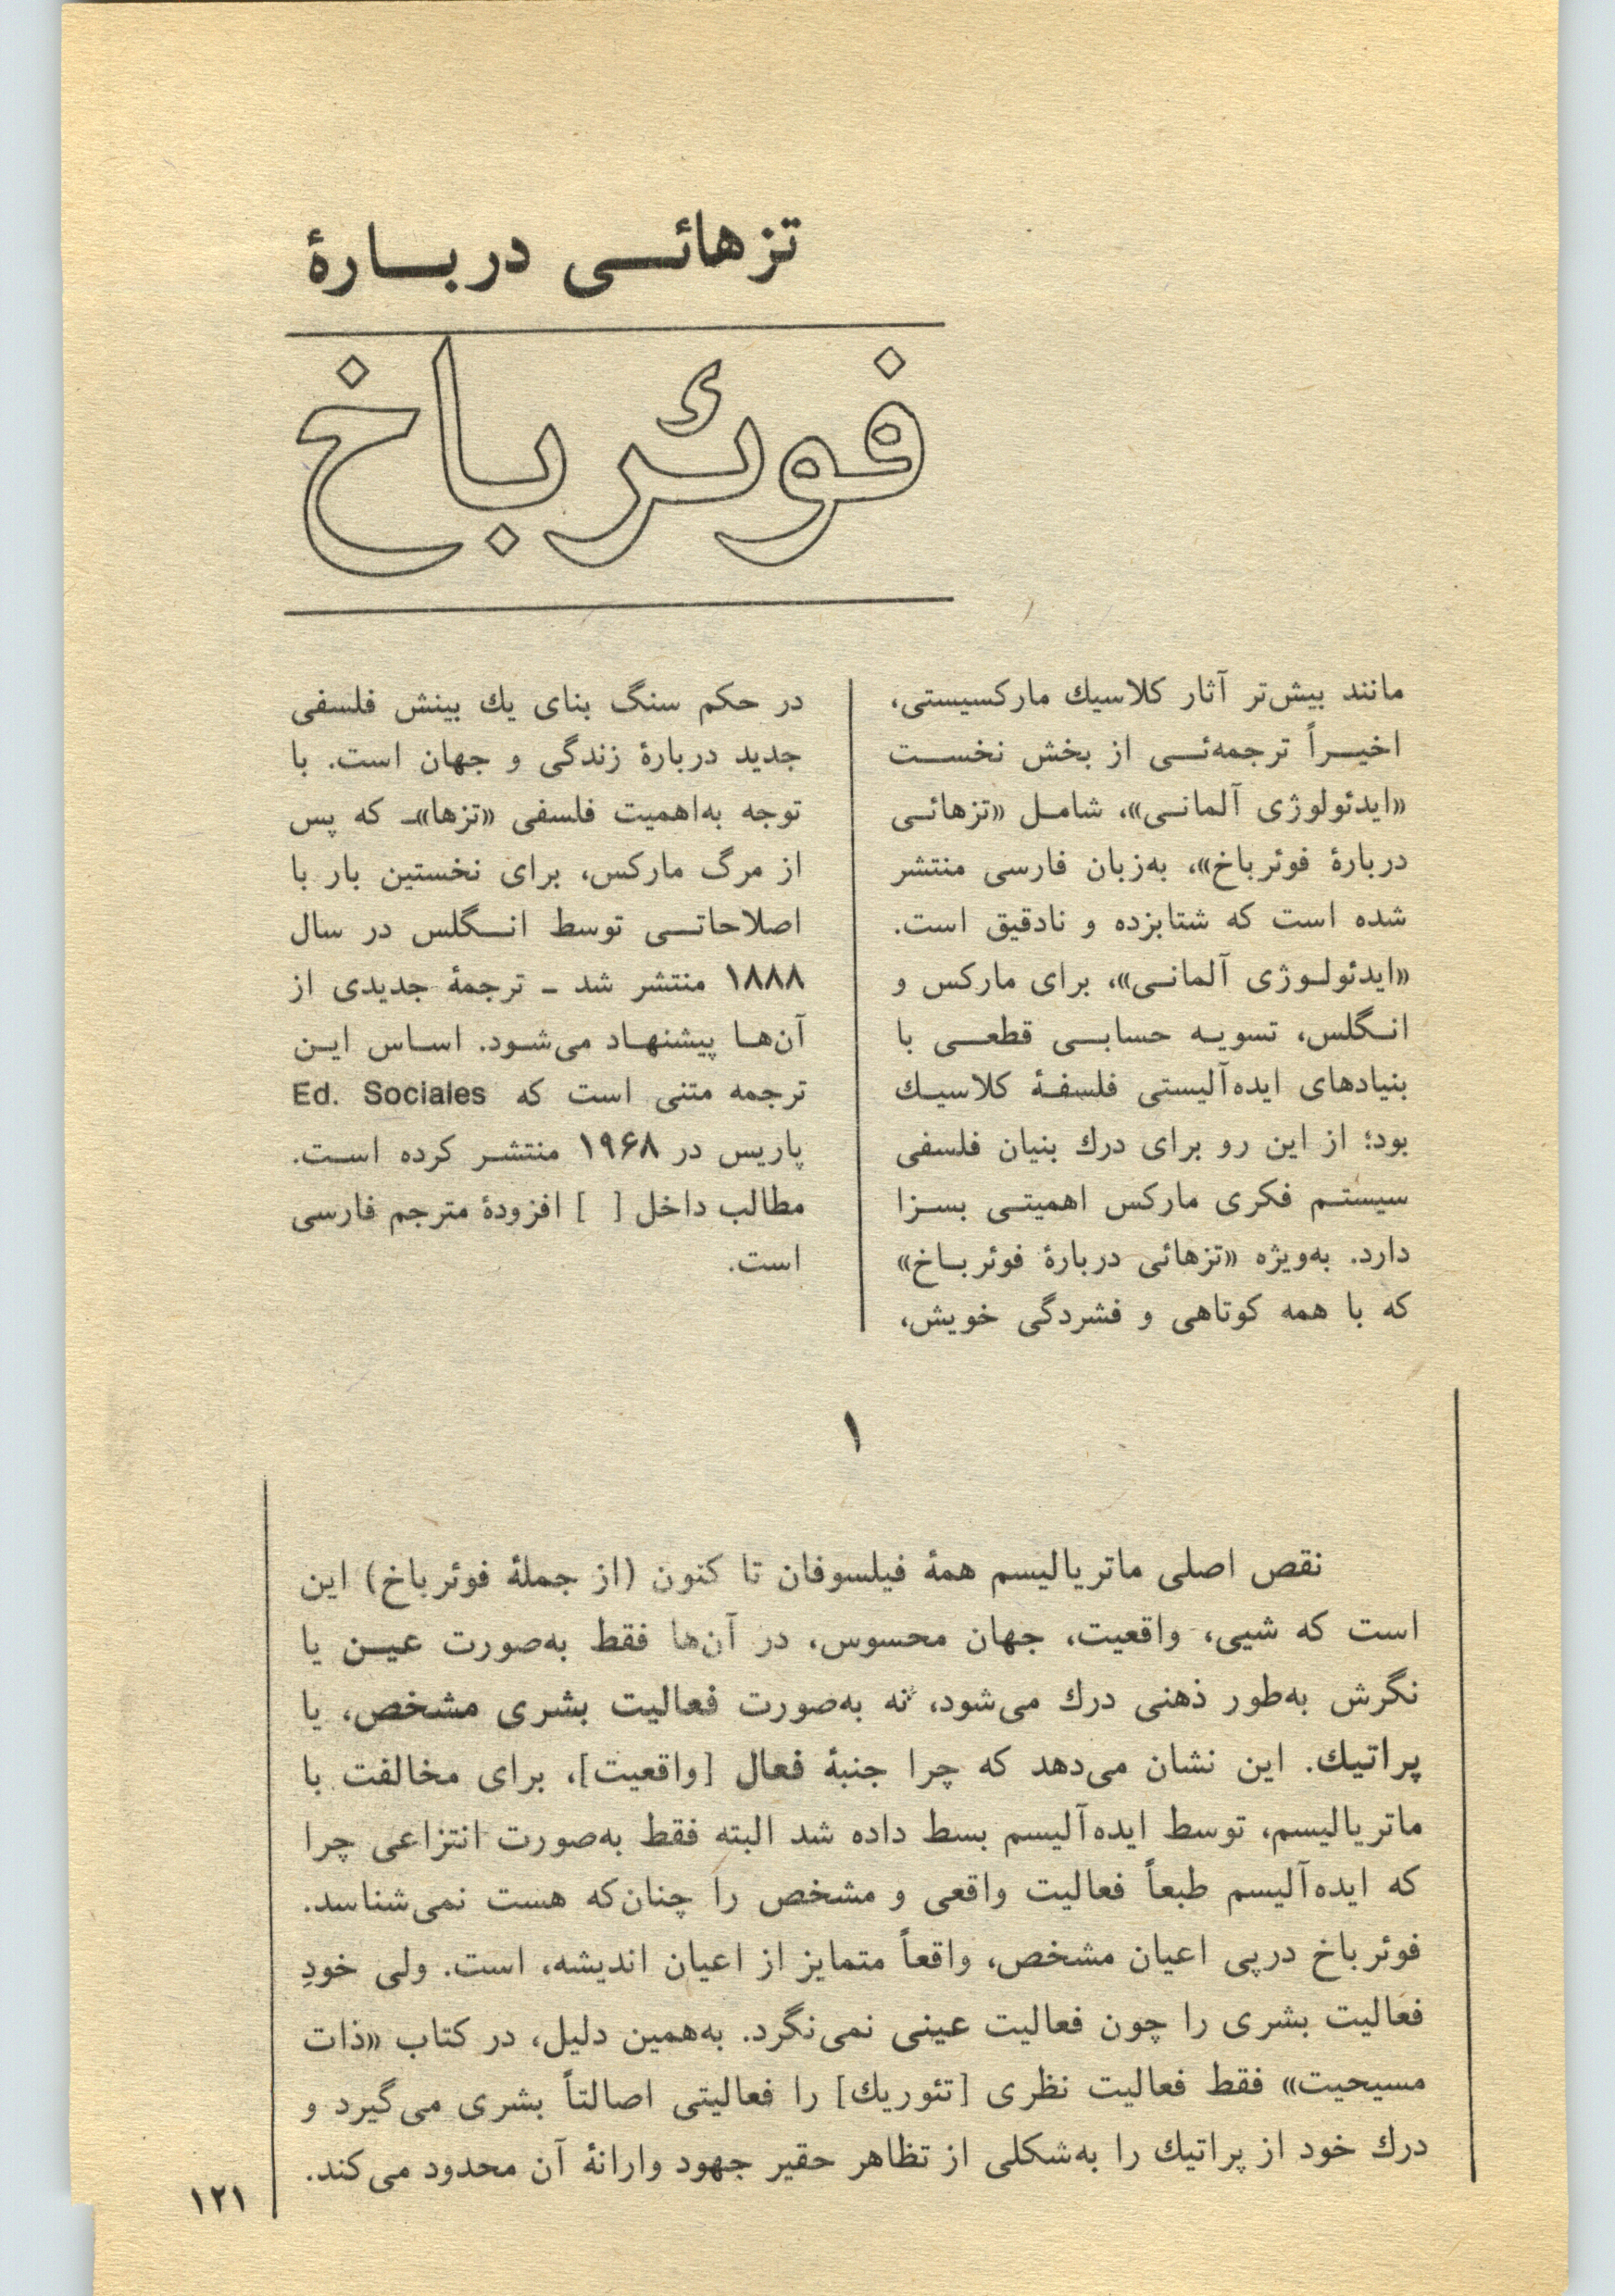 تزهائی دربارهٔ
فوئرباخ
مانند بیش‌تر آثار کلاسیك مارکسیستی،
اخیراً ترجمه‌ئی از بخش نخست
«ایدئولوژی آلمانی»، شامل «تزهائی
دربارهٔ فوئرباخ»، به‌زبان فارسی منتشر
شده است که شتابزده و نادقیق است.
«ایدئولوژی آلمانی»، برای مارکس و
انگلس، تسویه حسابی قطعی با
بنیادهای ایده‌آلیستی فلسفهٔ کلاسیك
بود؛ از این رو برای درك بنیان فلسفی
سیستم فکری مارکس اهمیتی بسزا
دارد. به‌ویژه «تزهائی دربارهٔ فوئرباخ»
که با همه کوتاهی و فشردگی خویش،
در حکم سنگ بنای یك بینش فلسفی
جدید دربارهٔ زندگی و جهان است. با
توجه به‌اهمیت فلسفی «تزها»ـ که پس
از مرگ مارکس، برای نخستین بار با
اصلاحاتی توسط انگلس در سال
۱۸۸۸ منتشر شد ـ ترجمهٔ جدیدی از
آن‌ها پیشنهاد می‌شود. اساس این
ترجمه متنی است که Ed. Sociales
پاریس در ۱۹۶۸ منتشر کرده است.
مطالب داخل [ ] افزودهٔ مترجم فارسی
است.
۱
نقص اصلی ماتریالیسم همهٔ فیلسوفان تا کنون (از جملهٔ فوئرباخ) این
است که شیی، واقعیت، جهان محسوس، در آن‌ها فقط به‌صورت عین یا
نگرش به‌طور ذهنی درك می‌شود، نه به‌صورت فعالیت بشری مشخص، یا
پراتیك. این نشان می‌دهد که چرا جنبهٔ فعال [واقعیت]، برای مخالفت با
ماتریالیسم، توسط ایده‌آلیسم بسط داده شد البته فقط به‌صورت انتزاعی چرا
که ایده‌آلیسم طبعاً فعالیت واقعی و مشخص را چنان‌که هست نمی‌شناسد.
فوئرباخ درپی اعیان مشخص، واقعاً متمایز از اعیان اندیشه، است. ولی خودِ
فعالیت بشری را چون فعالیت عینی نمی‌نگرد. به‌همین دلیل، در کتاب «ذات
مسیحیت» فقط فعالیت نظری [تئوریك] را فعالیتی اصالتاً بشری می‌گیرد و
درك خود از پراتیك را به‌شکلی از تظاهر حقیر جهود وارانهٔ آن محدود می‌کند.
۱۲۱